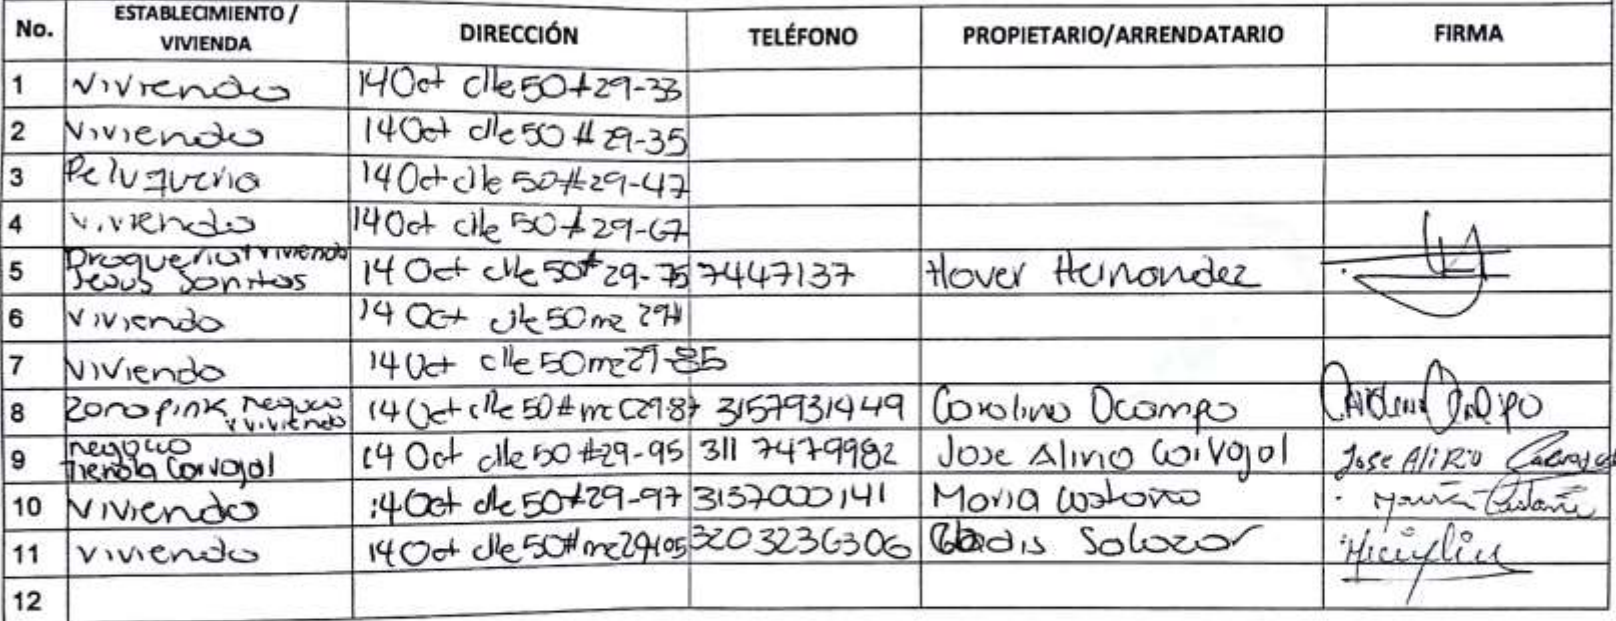 No. ESTABLECIMIENTO / VIVIENDA DIRECCIÓN TELÉFONO PROPIETARIO/ARRENDATARIO FIRMA
1 vivienda 14 Oct clle 50 # 29-33
2 vivienda 14 Oct clle 50 # 29-35
3 Peluqueria 14 Oct clle 50 # 29-47
4 vivienda 14 Oct clle 50 # 29-67
5 Drogueria + vivienda Jesus Santos 14 Oct clle 50 # 29-75 7447137 Hover Hernandez
6 vivienda 14 Oct clle 50 mz
7 vivienda 14 Oct clle 50 mz 29-85
8 Zona pink negocio y vivienda 14 Oct clle 50 # mz C 29-87 3157931949 Carolina Ocampo Carolina Ocampo
9 negocio Tienda Carvajal 14 Oct clle 50 # 29-95 311 7479982 Jose Alirio Carvajal Jose AliRio Carvajal
10 vivienda 14 Oct clle 50 # 29-97 3157000141 Maria Castaño Maria Castaño
11 vivienda 14 Oct clle 50 # mz 29-105 3203236306 Gladis Salazar
12